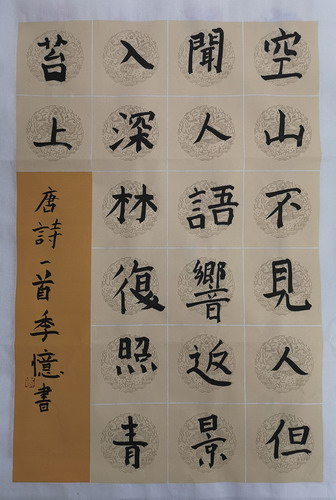 空山不見人但
聞人語響返景
入深林復照青
苔上
唐詩一首季憶書